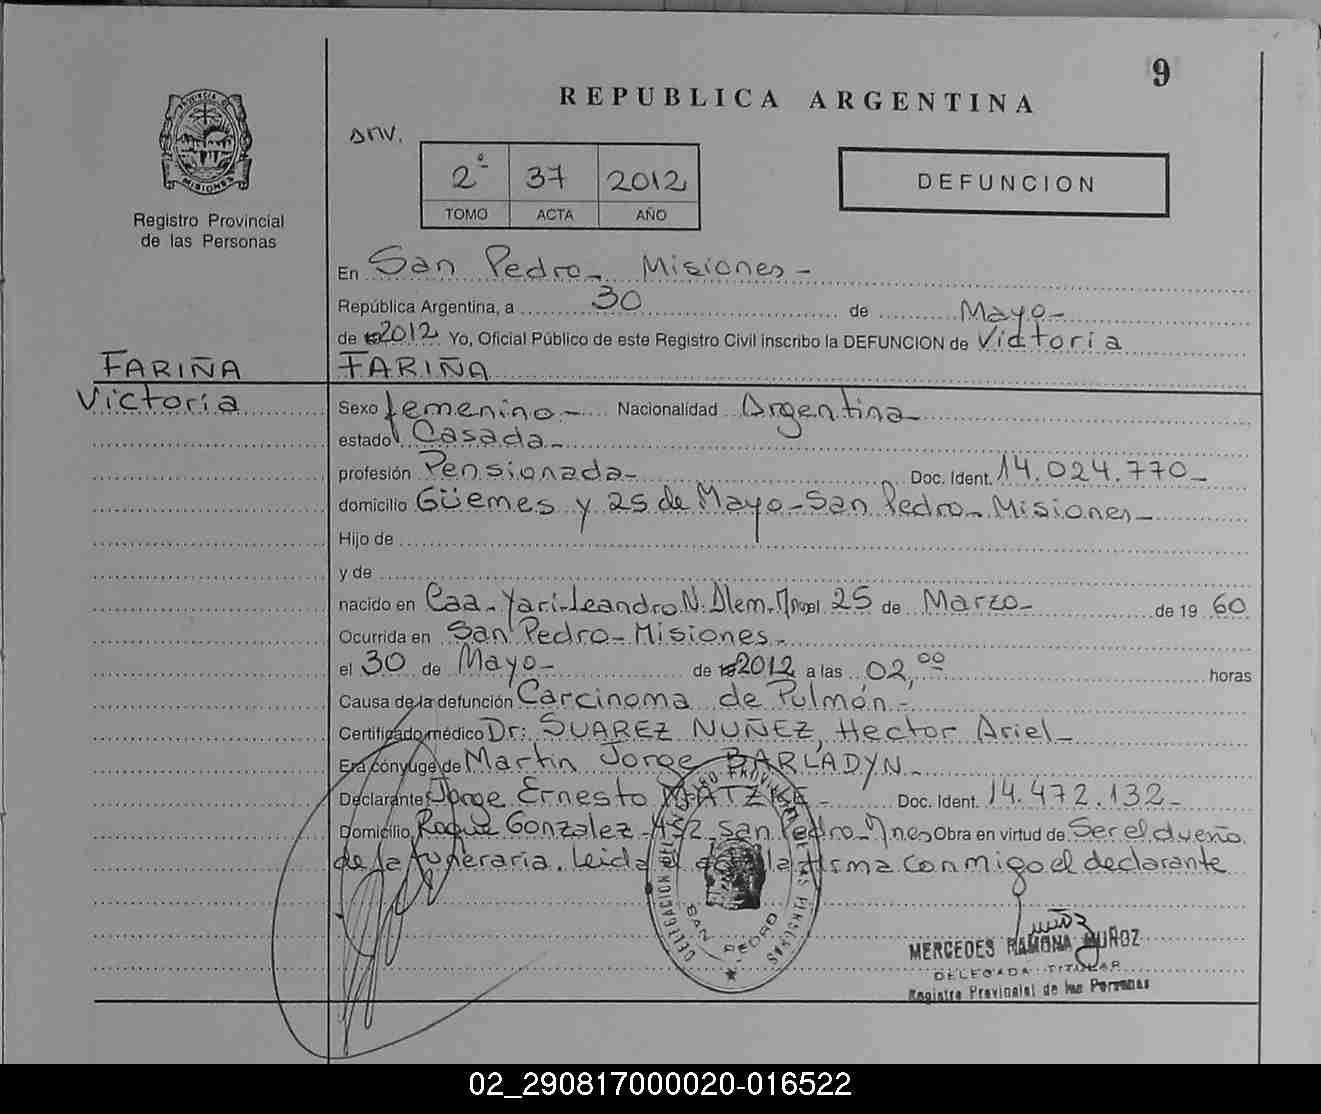 9
REPUBLICA ARGENTINA
PROVINCIA DE
MISIONES
Registro Provincial
de las Personas
2º 37 2012
TOMO ACTA AÑO
DEFUNCION
En San Pedro - Misiones -
República Argentina, a 30 de Mayo -
de 2012 Yo, Oficial Público de este Registro Civil inscribo la DEFUNCION de Victoria
FARIÑA FARIÑA
Victoria
Sexo femenino - Nacionalidad Argentina -
estado Casada -
profesión Pensionada - Doc. Ident. 14.024.770 -
domicilio Güemes y 25 de Mayo - San Pedro - Misiones -
Hijo de
y de
nacido en Caa - Yari - Leandro N. Alem - 25 de Marzo - de 19 60
Ocurrida en San Pedro - Misiones -
el 30 de Mayo - de 2012 a las 02,00 horas
Causa de la defunción Carcinoma de Pulmón -
Certificado médico Dr: SUAREZ NUÑEZ, Hector Ariel -
Era cónyuge de Martin Jorge BARLADYN -
Declarante Jorge Ernesto - Doc. Ident. 14.472.132 -
Domicilio Roque Gonzalez - 452 - San Pedro - Mnes Obra en virtud de Ser el dueño
de la funeraria. Leida el la misma conmigo el declarante
SAN PEDRO
MERCEDES RAMONA MUÑOZ
DELEGADA TITULAR
Registro Provincial de las Personas
02_290817000020-016522